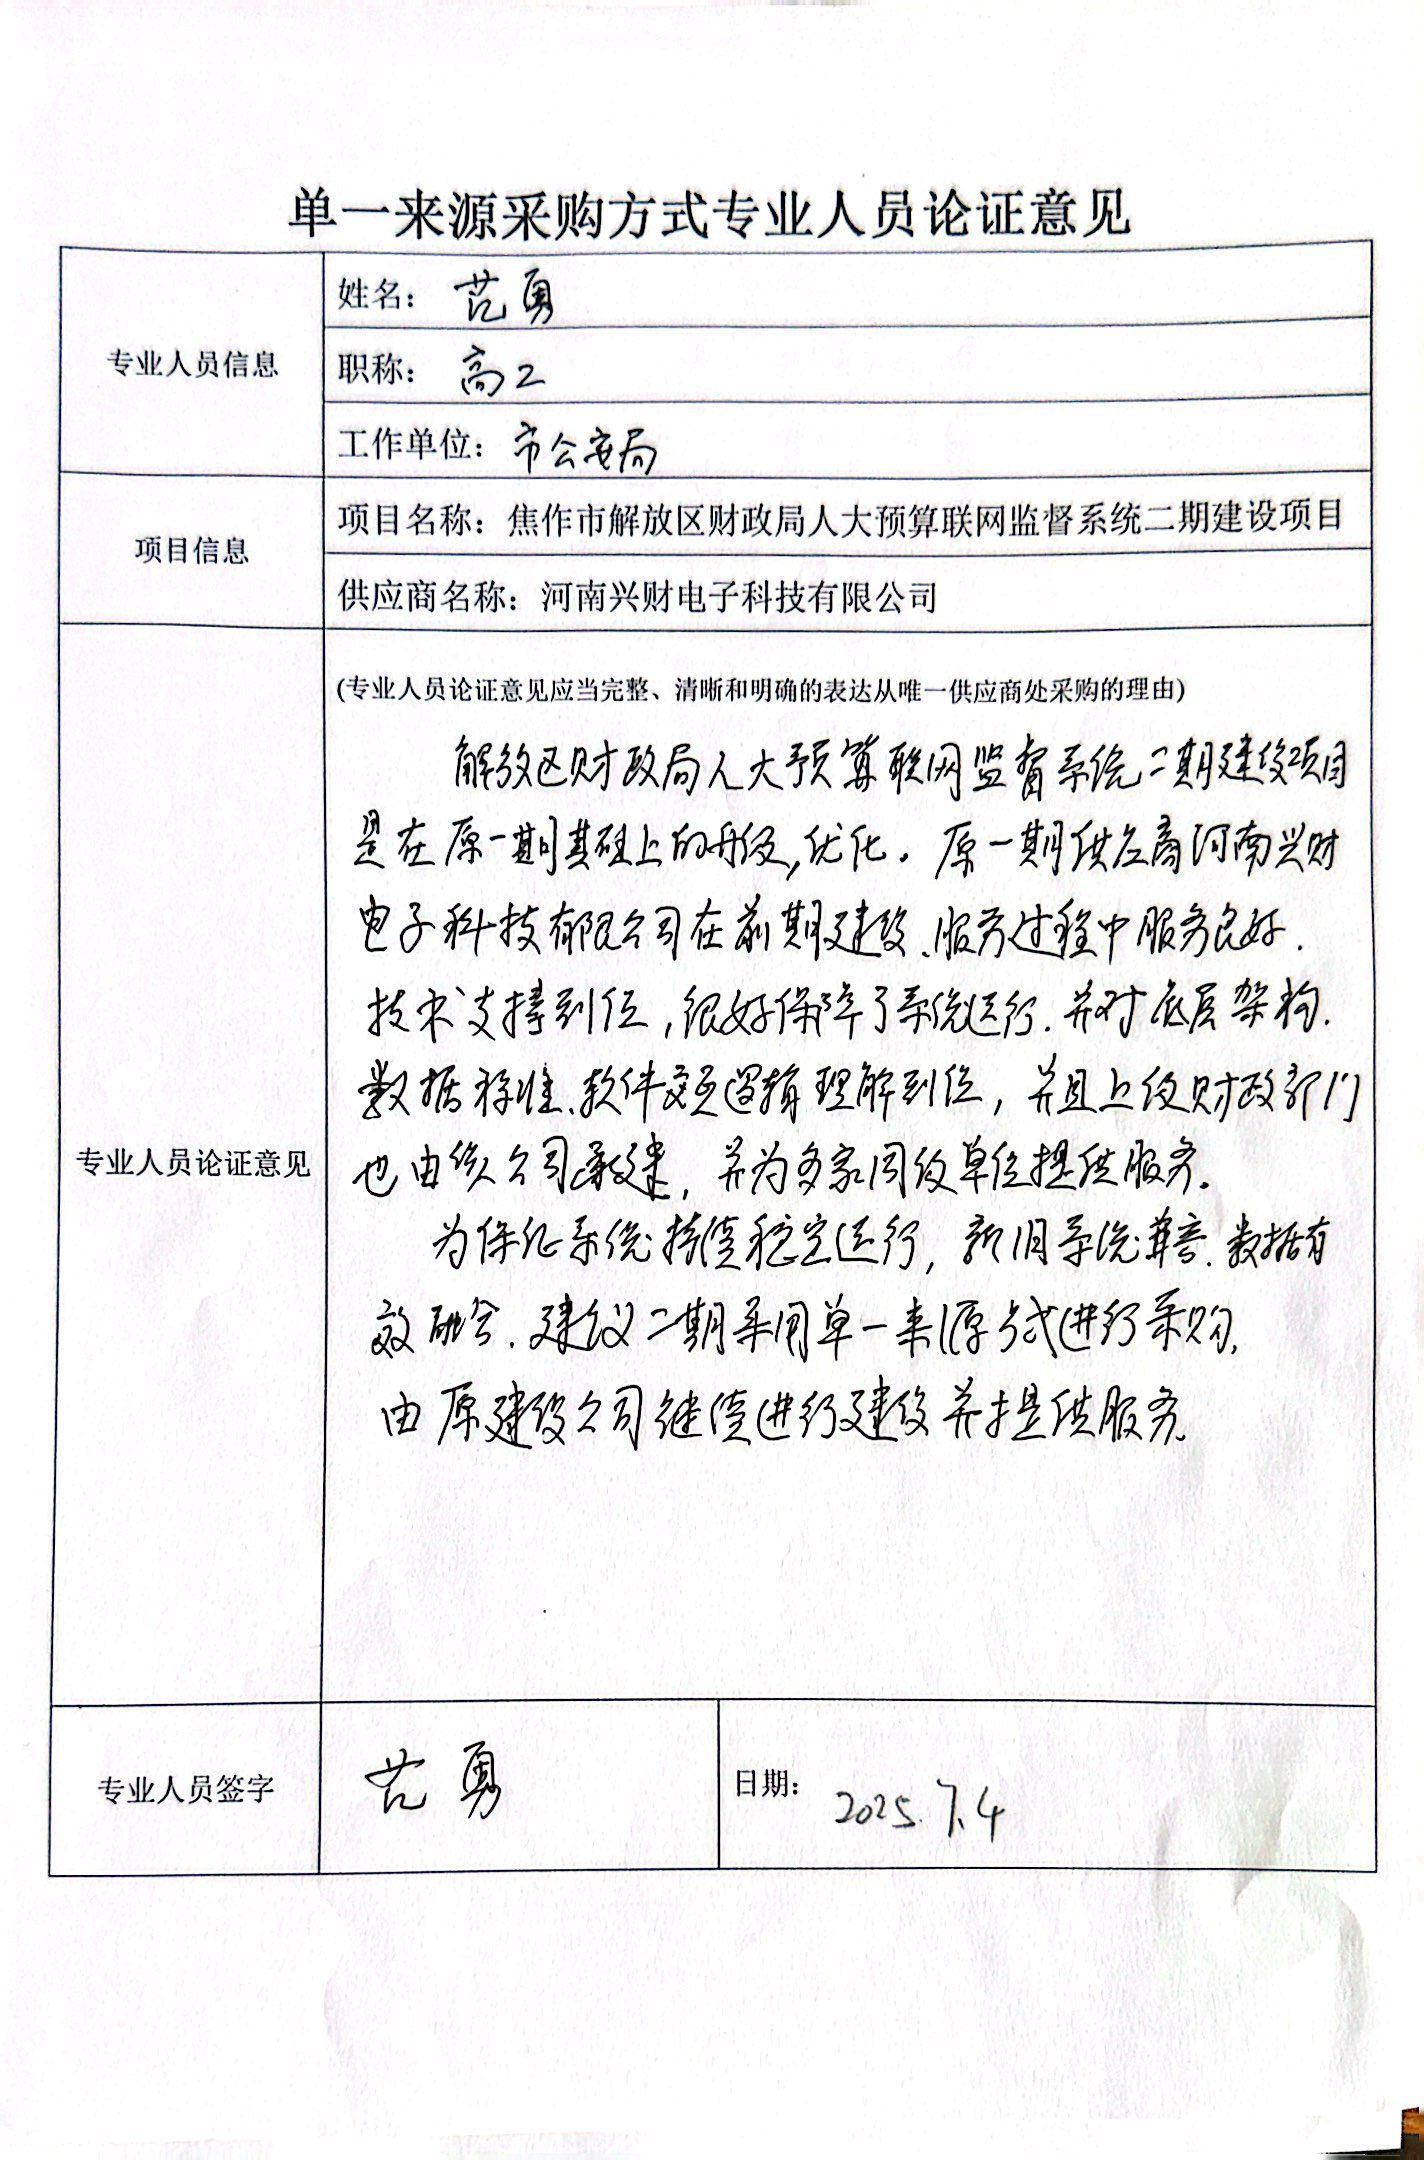 单一来源采购方式专业人员论证意见
专业人员信息
姓名：范勇
职称：高工
工作单位：市公安局
项目信息
项目名称：焦作市解放区财政局人大预算联网监督系统二期建设项目
供应商名称：河南兴财电子科技有限公司
专业人员论证意见
(专业人员论证意见应当完整、清晰和明确的表达从唯一供应商处采购的理由)
解放区财政局人大预算联网监督系统二期建设项目
是在原一期基础上的升级,优化。原一期供应商河南兴财
电子科技有限公司在前期建设、服务过程中服务良好.
技术支撑到位,很好保障了系统运行.并对底层架构.
数据标准、软件 逻辑理解到位,并且上级财政部门
也由该公司承建,并为多家同级单位提供服务。
为保证系统持续稳定运行,新旧系统兼容.数据有
效融合.建议二期采用单一来源方式进行采购,
由原建设公司继续进行建设并提供服务.
专业人员签字
范勇
日期：2025.7.4